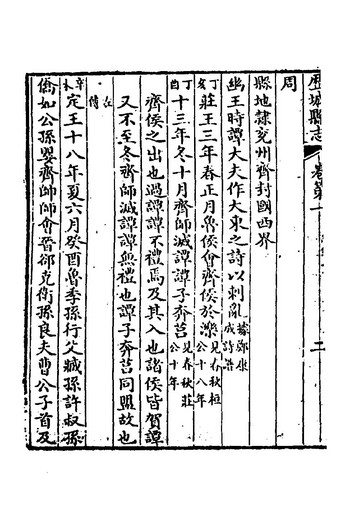 歷城縣志
卷第一
二
周
縣地隷兗州齊封國西界
幽王時譚大夫作大東之詩以刺亂據鄭康成詩譜
丁亥莊王三年春正月魯侯會齊侯於濼見春秋桓公十八年
丁酉十三年冬十月齊師滅譚譚子奔莒見春秋莊公十年
齊侯之出也過譚譚不禮焉及其入也諸侯皆賀譚
又不至冬齊師滅譚譚無禮也譚子奔莒同盟故也
左傳
辛未定王十八年夏六月癸酉魯季孫行父臧孫許叔孫
僑如公孫嬰齊帥師會晉郤克衛孫良夫曹公子首及